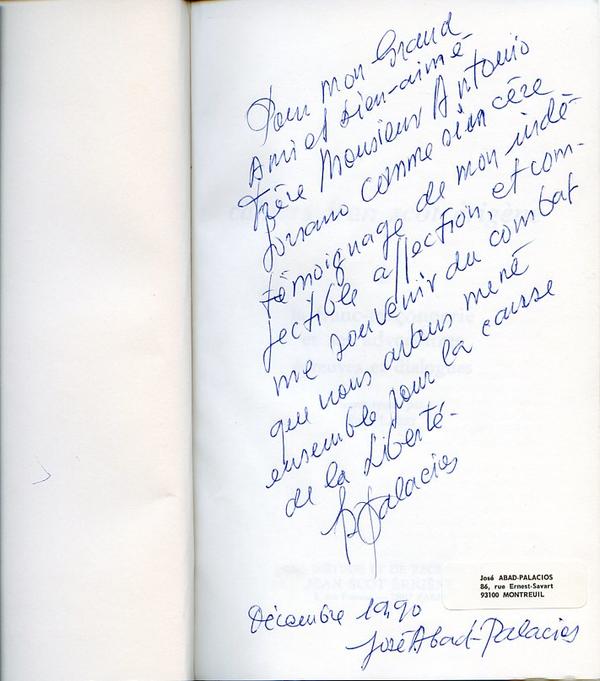 Pour mon Grand
Ami et bien-aimé
Frère Monsieur Antonio
Soriano comme sincère
témoignage de mon indé-
fectible affection et com-
me souvenir du combat
que nous avons mené
ensemble pour la cause
de la Liberté-
Palacios
José ABAD-PALACIOS
86, rue Ernest-Savart
93100 MONTREUIL
Décembre 1990
José Abad-Palacios